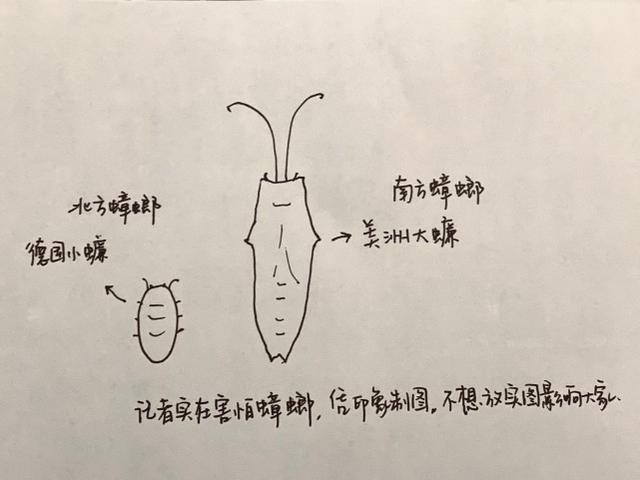 北方蟑螂
德国小蠊
南方蟑螂
美洲大蠊
记者实在害怕蟑螂,信印象制图。不想放实图影响大家